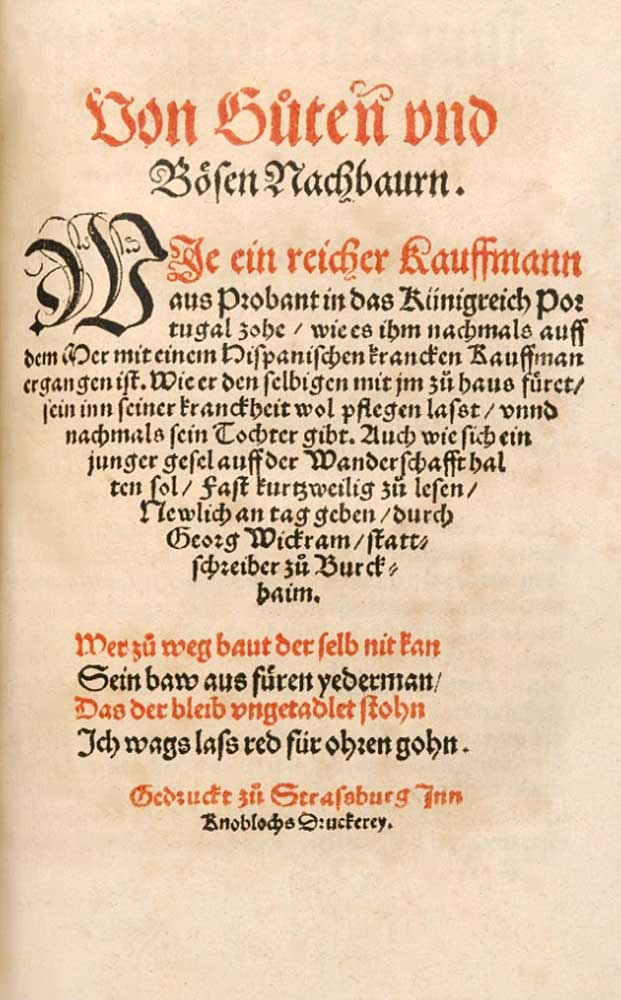 Von Gůteñ vnd
Bösen Nachbaurn.
WIe ein reicher Kauffmann
aus Probant in das Künigreich Por
tugal zohe / wie es ihm nachmals auff
dem Mer mit einem Hispanischen krancken Kauffman
ergangen ist. Wie er den selbigen mit jm zů haus füret/
sein inn seiner kranckheit wol pflegen lasst / vnnd
nachmals sein Tochter gibt. Auch wie sich ein
junger gesel auff der Wanderschafft hal
ten sol / Fast kurtzweilig zů lesen /
Newlich an tag geben / durch
Georg Wickram / statt⸗
schreiber zů Burck⸗
haim.
Wer zů weg baut der selb nit kan
Sein baw aus füren yederman/
Das der bleib vngetadlet stohn
Ich wags lass red für ohren gohn.
Gedruckt zů Strassburg Inn
Knoblochs Druckerey.